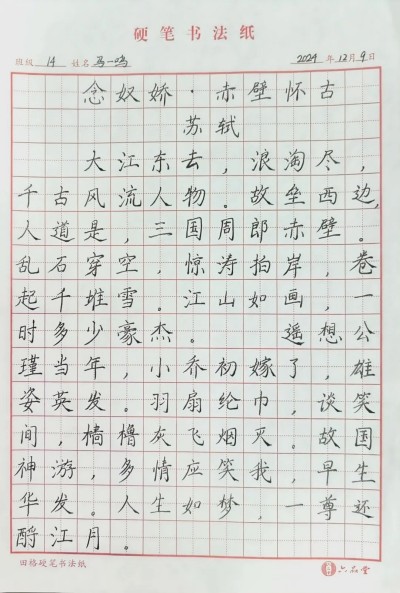 硬笔书法纸
班级 14 姓名 马一鸣 2024 年 12 月 9 日
念奴娇·赤壁怀古
苏轼
大江东去，浪淘尽，
千古风流人物。故垒西边，
人道是，三国周郎赤壁。
乱石穿空，惊涛拍岸，卷
起千堆雪。江山如画，一
时多少豪杰。 遥想公
瑾当年，小乔初嫁了，雄
姿英发。羽扇纶巾，谈笑
间，樯橹灰飞烟灭。故国
神游，多情应笑我，早生
华发。人生如梦，一尊还
酹江月。
田格硬笔书法纸 六品堂